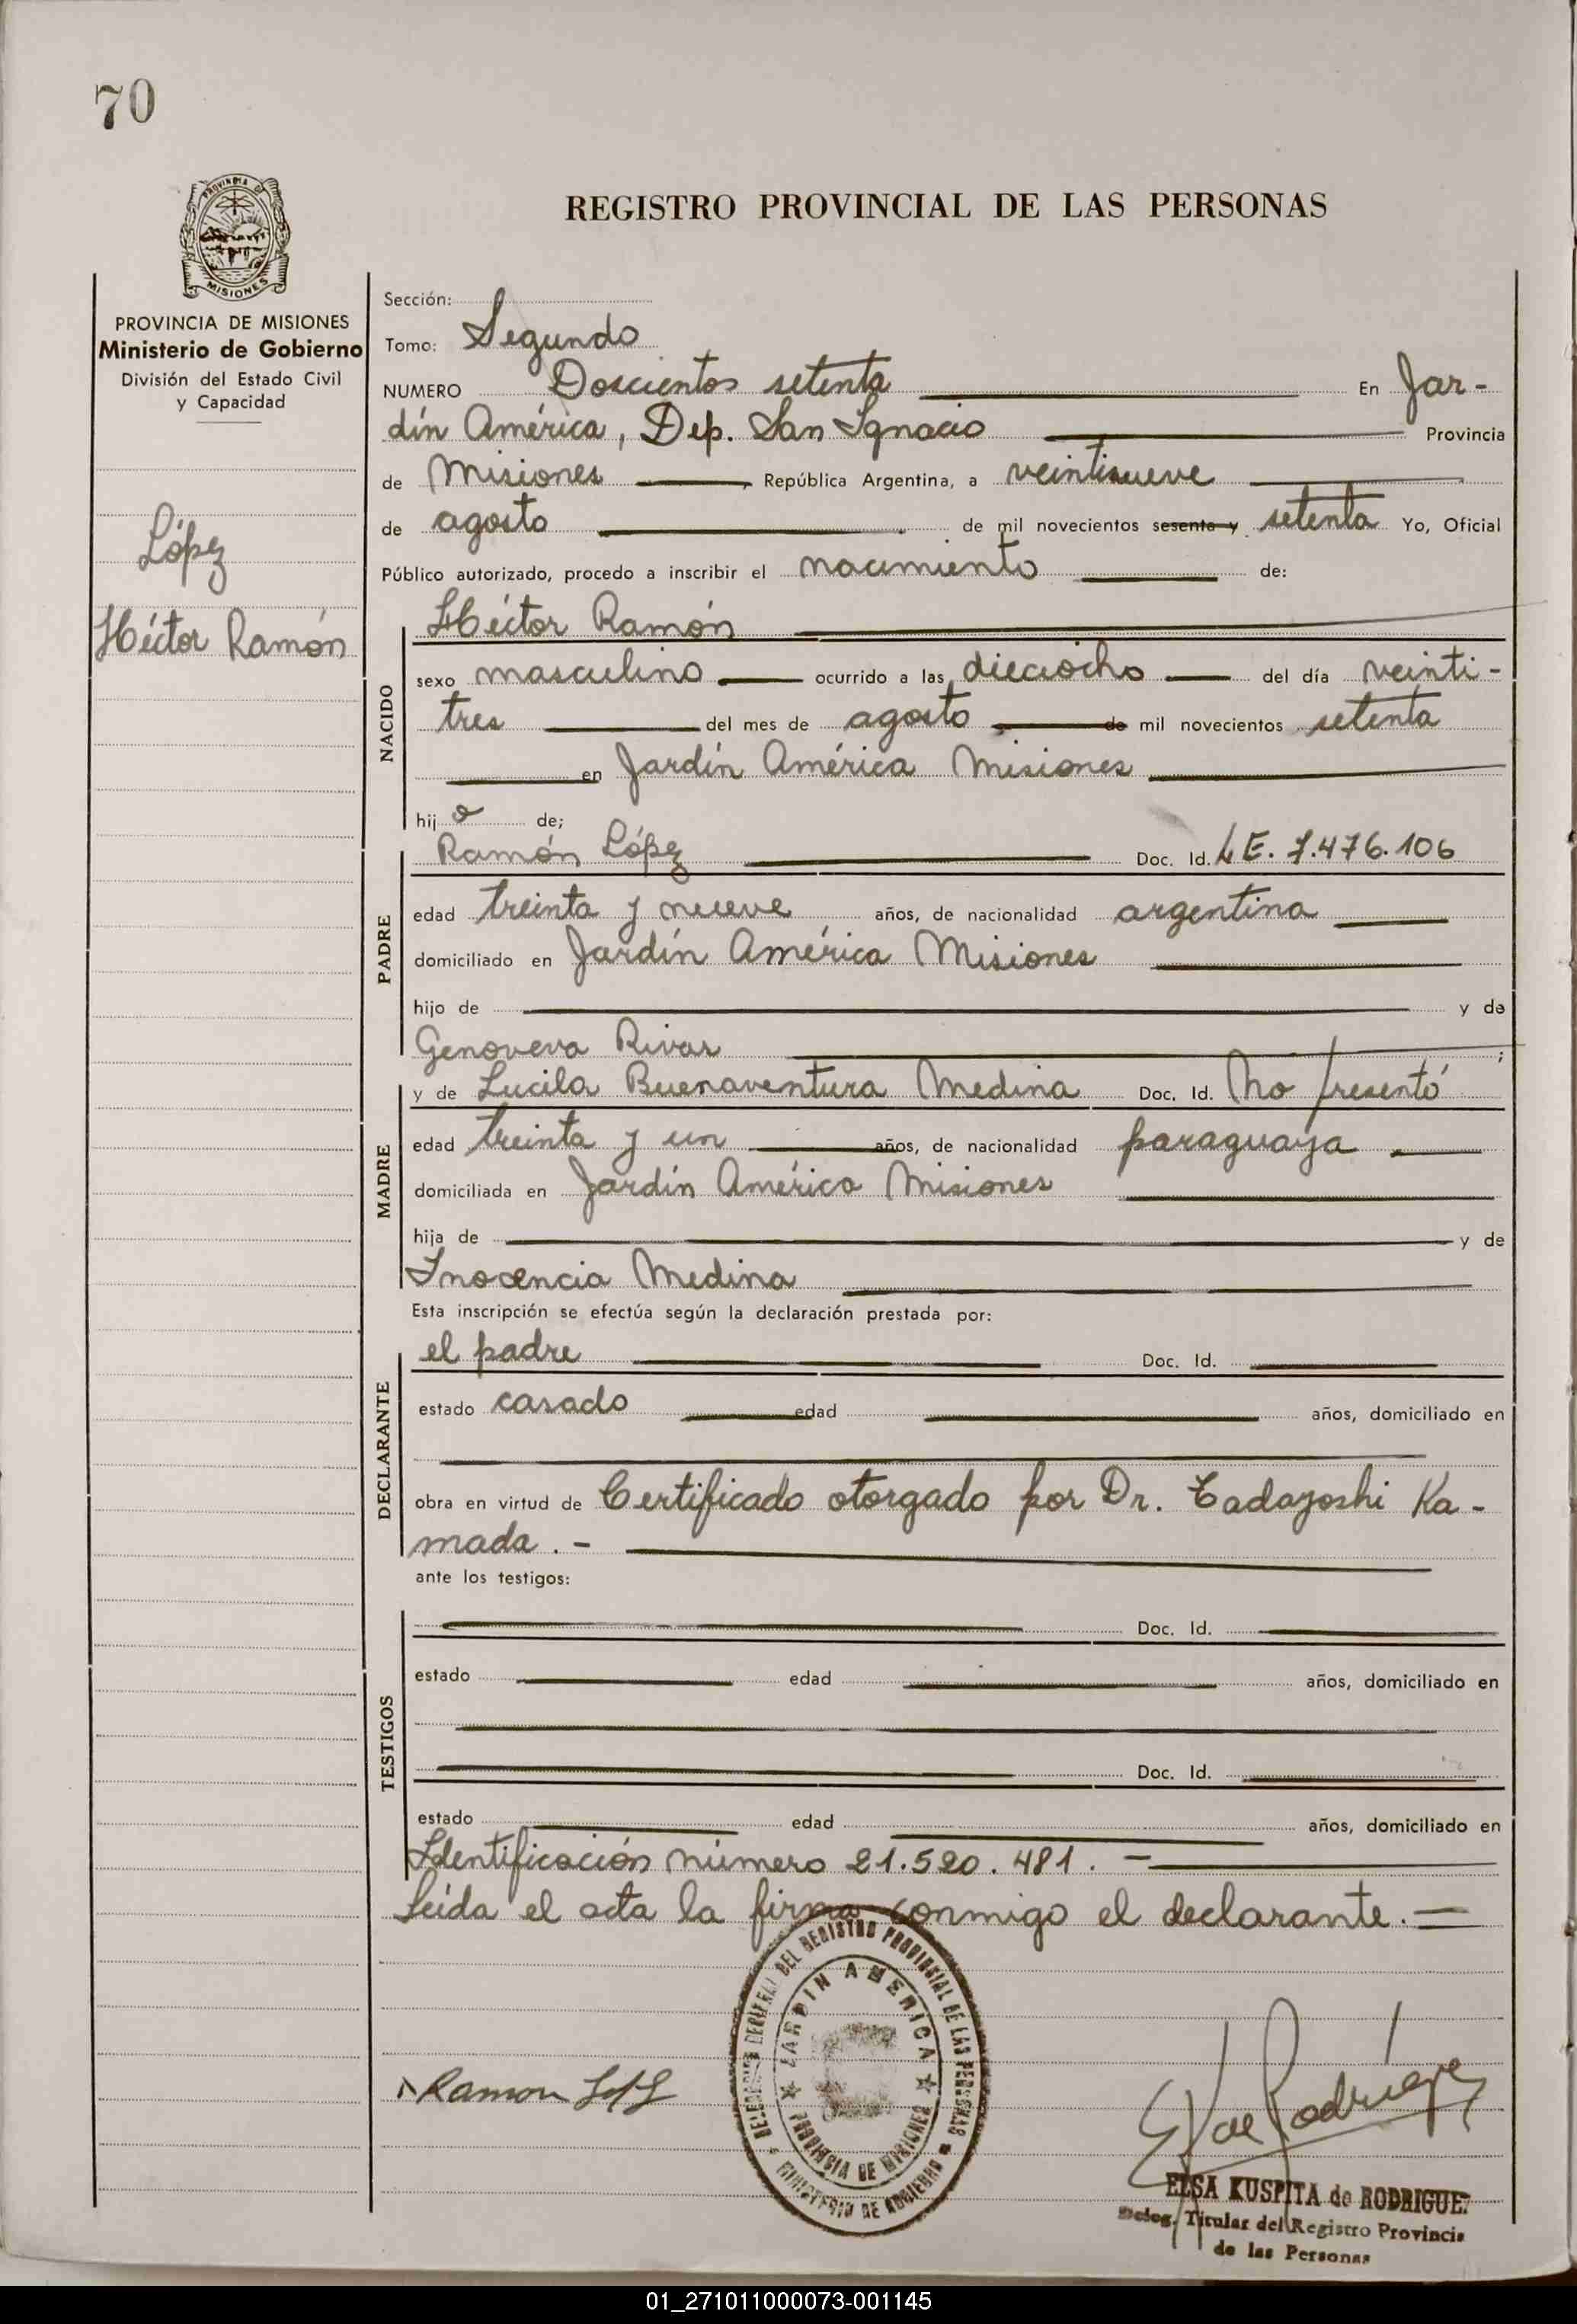 70
PROVINCIA DE
MISIONES
REGISTRO PROVINCIAL DE LAS PERSONAS
PROVINCIA DE MISIONES
Ministerio de Gobierno
División del Estado Civil
y Capacidad
López
Héctor Ramón
Sección:
Tomo: Segundo
NUMERO Doscientos setenta En Jar-
dín América, Dep. San Ignacio Provincia
de Misiones, República Argentina, a veintinueve
de agosto de mil novecientos sesenta y setenta Yo, Oficial
Público autorizado, procedo a inscribir el nacimiento de:
NACIDO
Héctor Ramón
sexo masculino ocurrido a las dieciocho del día veinti-
tres del mes de agosto de mil novecientos setenta
en Jardín América Misiones
hijo de;
PADRE
Ramón López Doc. Id. LE. 7.476.106
edad treinta y nueve años, de nacionalidad argentina
domiciliado en Jardín América Misiones
hijo de y de
Genoveva Rivas ;
MADRE
y de Lucila Buenaventura Medina Doc. Id. No presentó
edad treinta y un años, de nacionalidad paraguaya
domiciliada en Jardín América Misiones
hija de y de
Inocencia Medina
Esta inscripción se efectúa según la declaración prestada por:
DECLARANTE
el padre Doc. Id.
estado casado edad años, domiciliado en
obra en virtud de Certificado otorgado por Dr. Tadayoshi Ka-
mada.-
ante los testigos:
TESTIGOS
Doc. Id.
estado edad años, domiciliado en
Doc. Id.
estado edad años, domiciliado en
Identificación número 21.520.481.-
Leída el acta la firma conmigo el declarante.-
DEL REGISTRO PROVINCIAL DE LAS PERSONAS
JARDIN AMERICA
PROVINCIA DE MISIONES
MINISTERIO DE GOBIERNO
Ramon
E K de Rodríguez
ELSA KUSPITA de RODRIGUE
Deleg. Titular del Registro Provincia
de las Personas
01_271011000073-001145